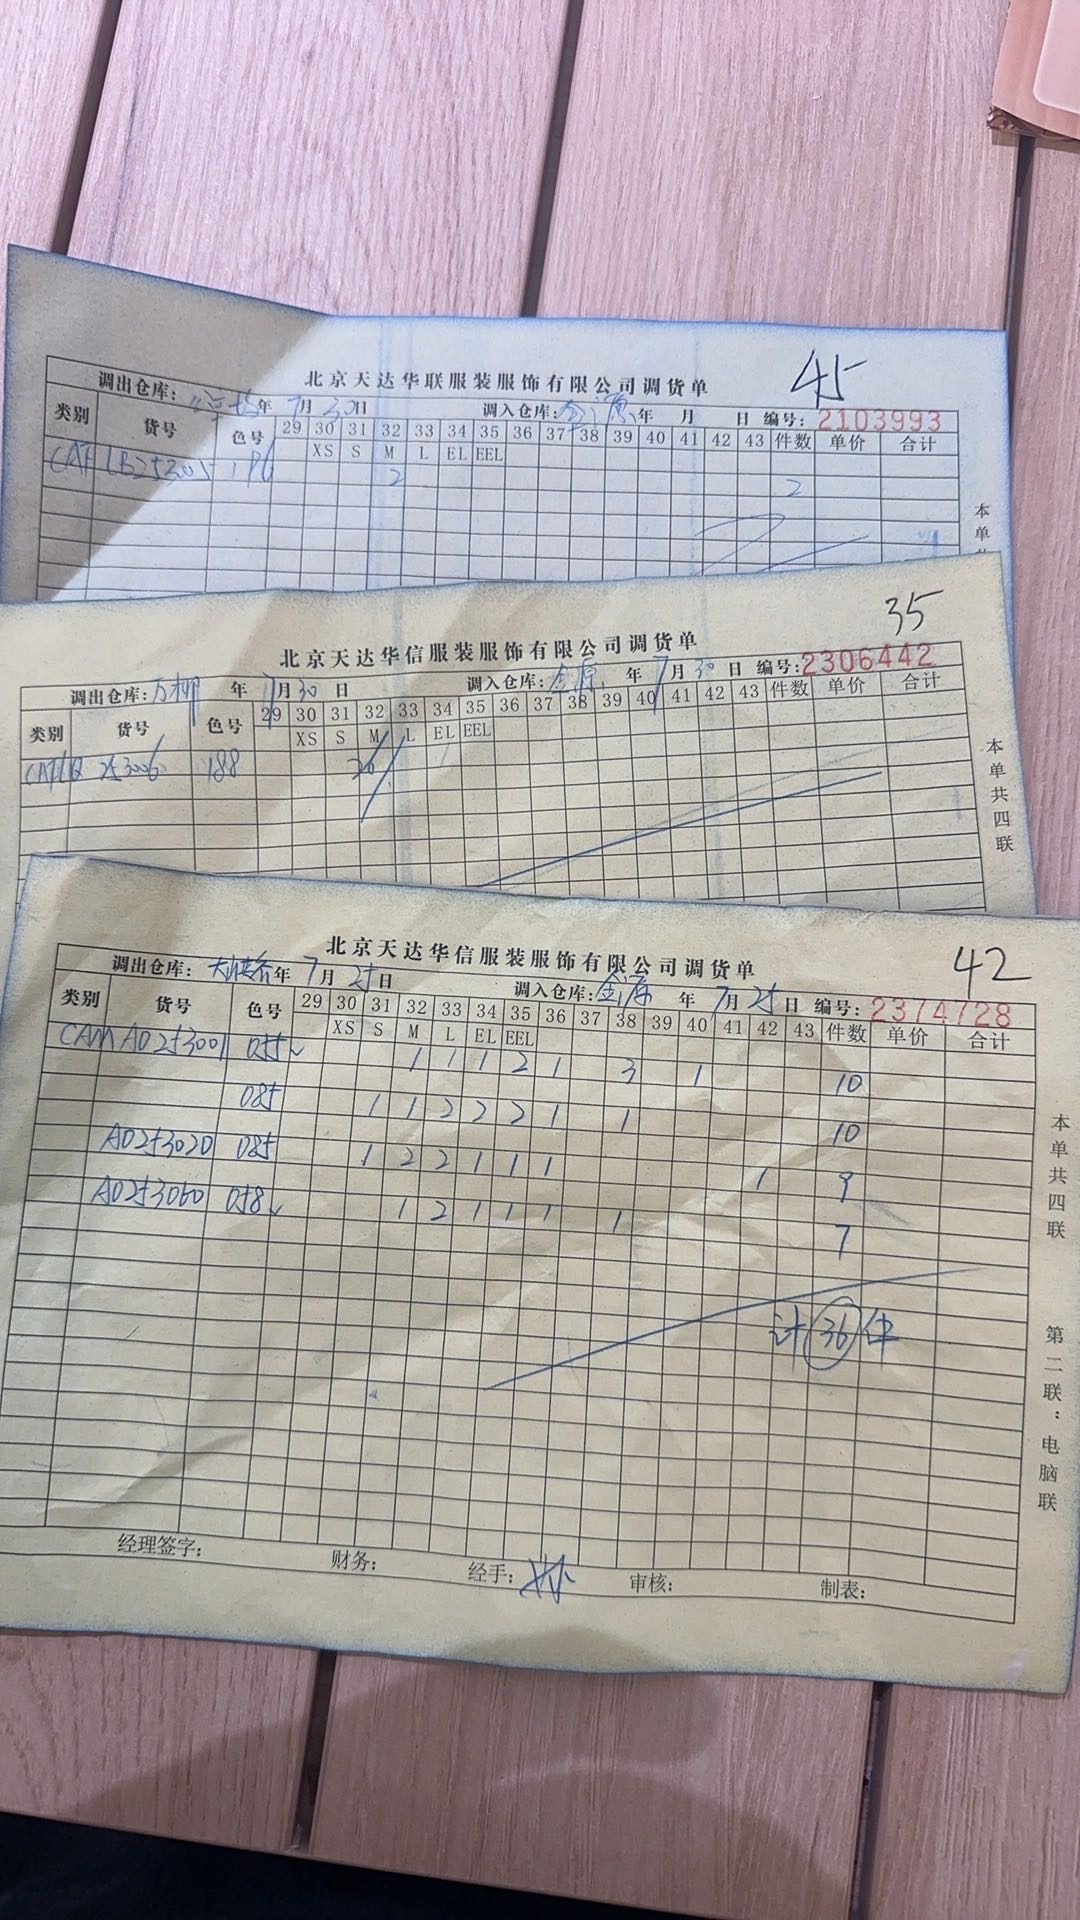 45
北京天达华联服装服饰有限公司调货单
调出仓库: 年 7月 30日 调入仓库:金源 年 月 日 编号:2103993
类别 货号 色号 29 30 31 32 33 34 35 36 37 38 39 40 41 42 43 件数 单价 合计
XS S M L EL EEL
2 2
本单
35
北京天达华信服装服饰有限公司调货单
调出仓库:万柳 年 7月 30 日 调入仓库:金源 年 7月 30 日 编号:2306442
类别 货号 色号 29 30 31 32 33 34 35 36 37 38 39 40 41 42 43 件数 单价 合计
XS S M L EL EEL
253006 188
本单共四联
42
北京天达华信服装服饰有限公司调货单
调出仓库: 年 7月 25日 调入仓库:金源 年 7月 25日 编号:2374728
类别 货号 色号 29 30 31 32 33 34 35 36 37 38 39 40 41 42 43 件数 单价 合计
XS S M L EL EEL
CAM AD253001 055 1 1 1 2 1 3 1 10
085 1 1 2 2 2 1 1 10
AD253020 085 1 2 2 1 1 1 1 9
AD253060 058 1 2 1 1 1 1 7
计36件
本单共四联
第二联:电脑联
经理签字: 财务: 经手: 审核: 制表: